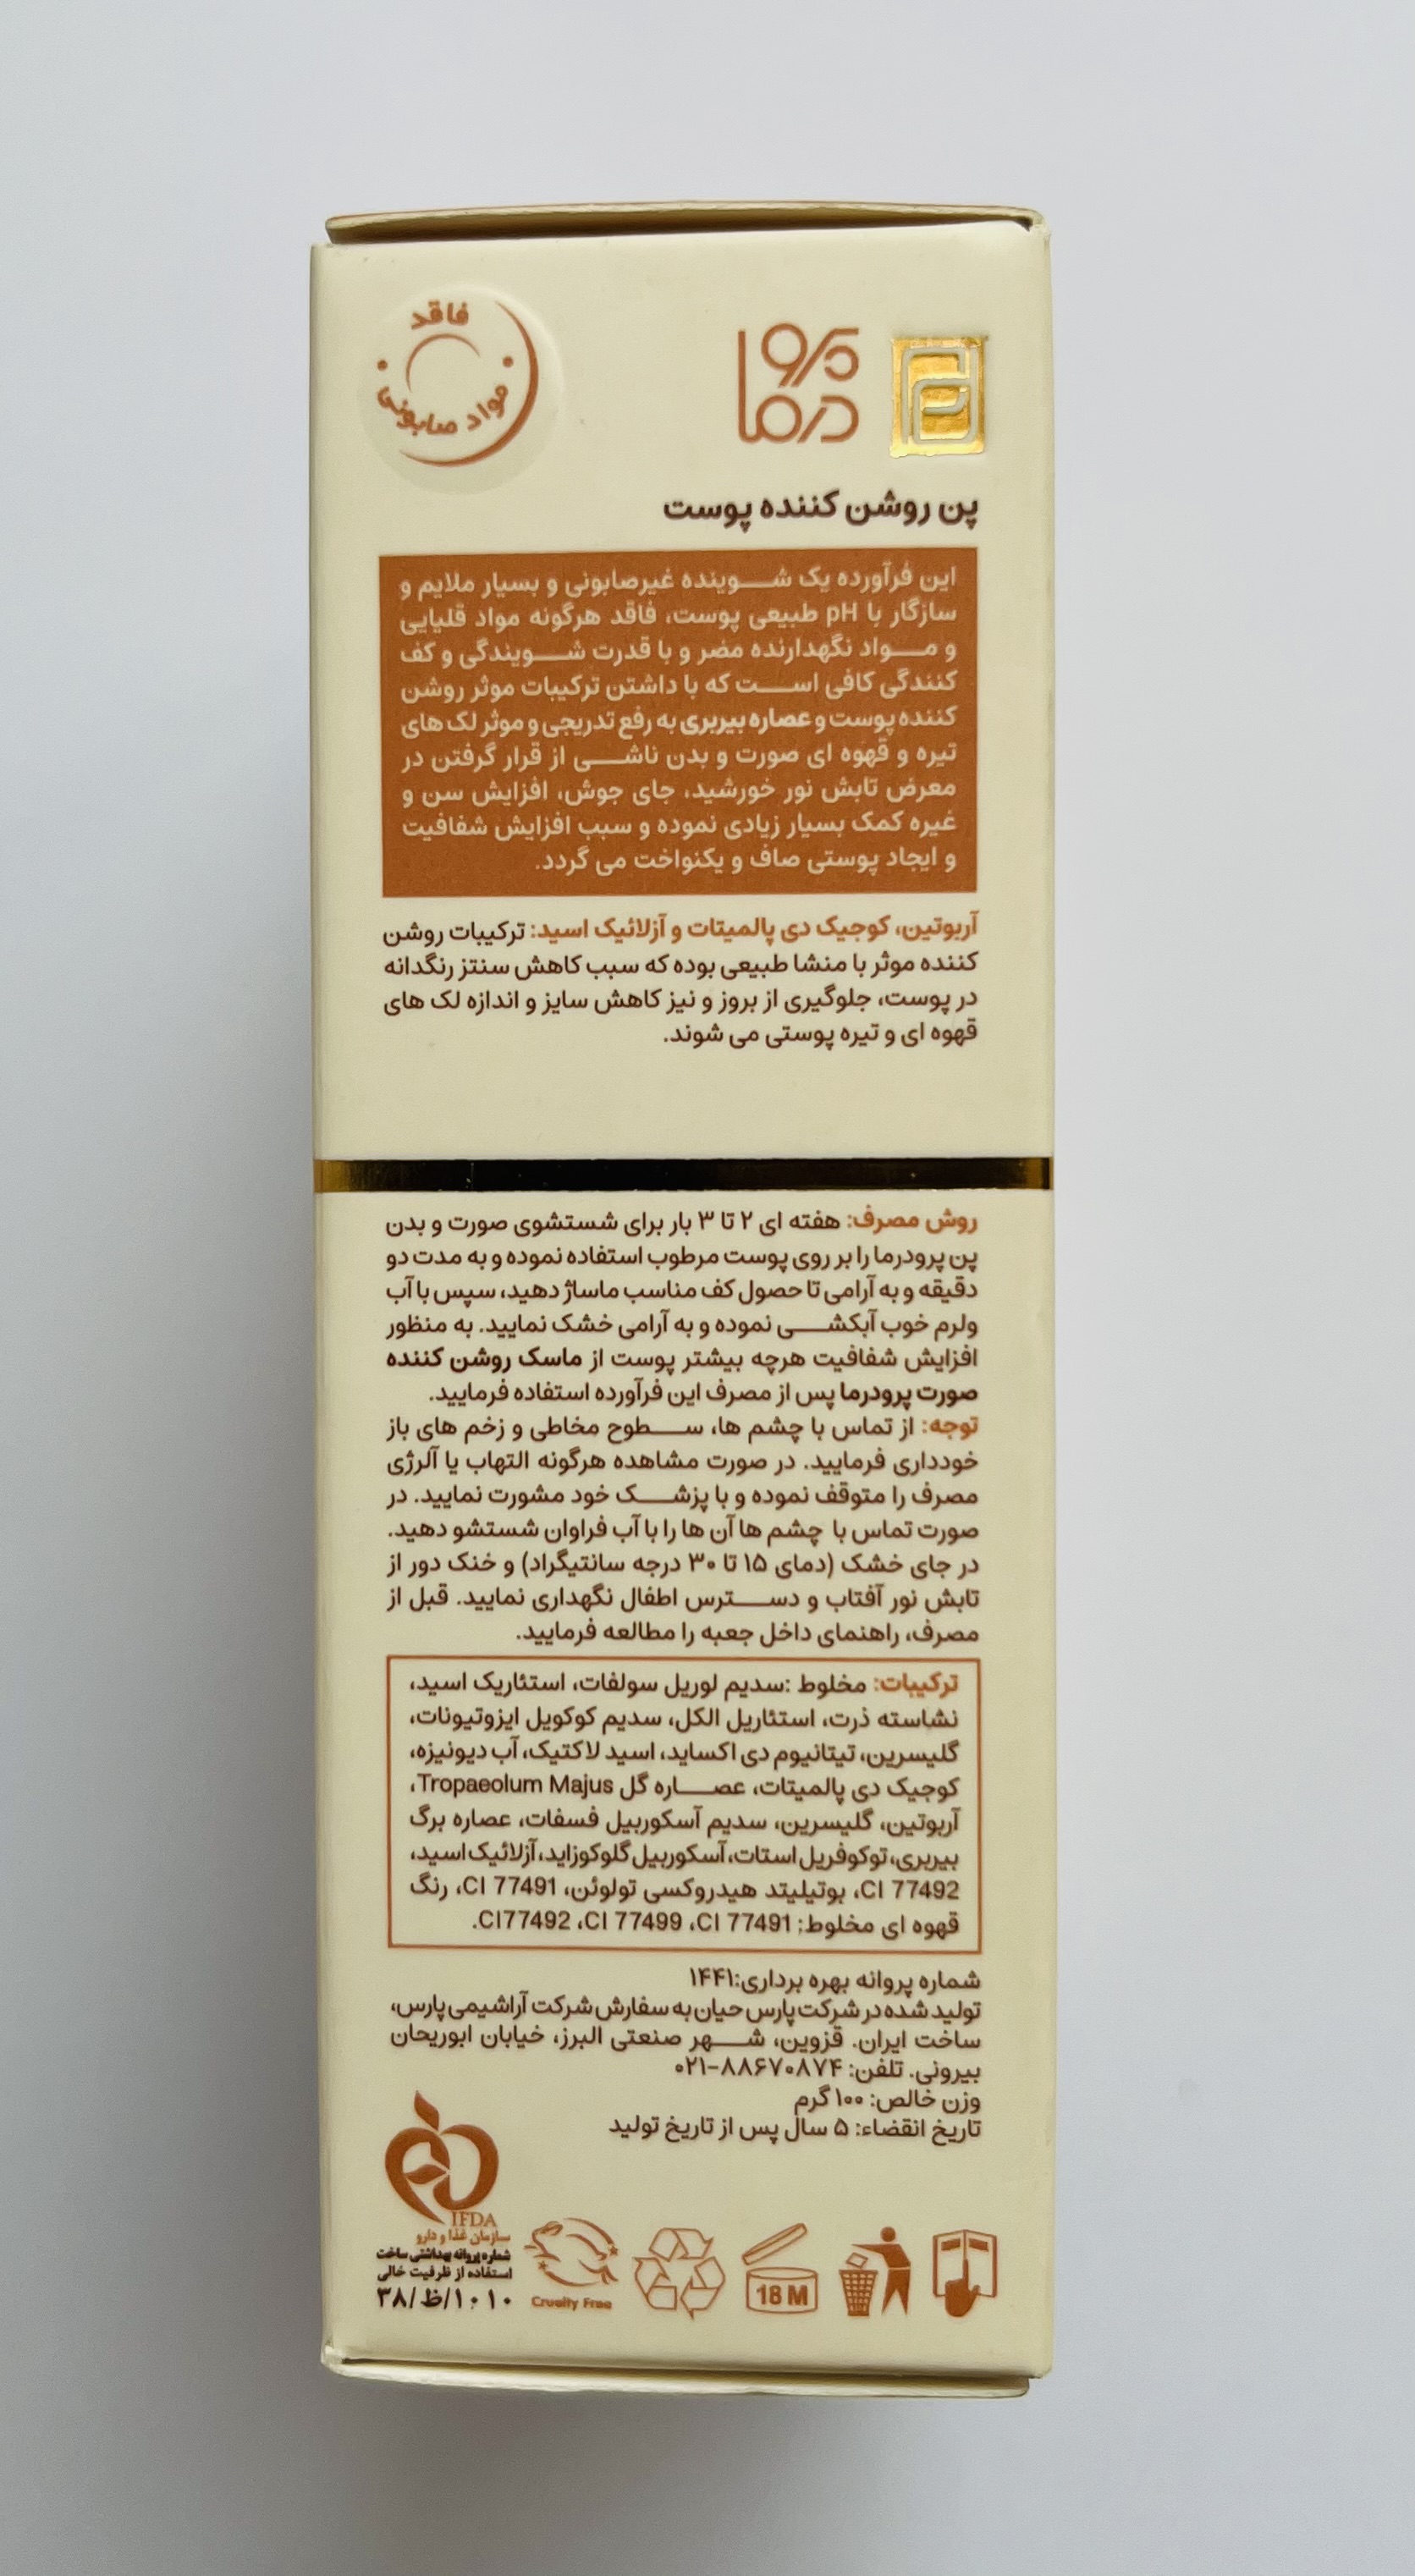 فاقد
مواد صابونی
پرو
درما
پن روشن کننده پوست
این فرآورده یک شوینده غیرصابونی و بسیار ملایم و
سازگار با pH طبیعی پوست، فاقد هرگونه مواد قلیایی
و مواد نگهدارنده مضر و با قدرت شویندگی و کف
کنندگی کافی است که با داشتن ترکیبات موثر روشن
کننده پوست و عصاره بیربری به رفع تدریجی و موثر لک های
تیره و قهوه ای صورت و بدن ناشی از قرار گرفتن در
معرض تابش نور خورشید، جای جوش، افزایش سن و
غیره کمک بسیار زیادی نموده و سبب افزایش شفافیت
و ایجاد پوستی صاف و یکنواخت می گردد.
آربوتین، کوجیک دی پالمیتات و آزلائیک اسید: ترکیبات روشن
کننده موثر با منشا طبیعی بوده که سبب کاهش سنتز رنگدانه
در پوست، جلوگیری از بروز و نیز کاهش سایز و اندازه لک های
قهوه ای و تیره پوستی می شوند.
روش مصرف: هفته ای ۲ تا ۳ بار برای شستشوی صورت و بدن
پن پرودرما را بر روی پوست مرطوب استفاده نموده و به مدت دو
دقیقه و به آرامی تا حصول کف مناسب ماساژ دهید، سپس با آب
ولرم خوب آبکشی نموده و به آرامی خشک نمایید. به منظور
افزایش شفافیت هرچه بیشتر پوست از ماسک روشن کننده
صورت پرودرما پس از مصرف این فرآورده استفاده فرمایید.
توجه: از تماس با چشم ها، سطوح مخاطی و زخم های باز
خودداری فرمایید. در صورت مشاهده هرگونه التهاب یا آلرژی
مصرف را متوقف نموده و با پزشک خود مشورت نمایید. در
صورت تماس با چشم ها آن ها را با آب فراوان شستشو دهید.
در جای خشک (دمای ۱۵ تا ۳۰ درجه سانتیگراد) و خنک دور از
تابش نور آفتاب و دسترس اطفال نگهداری نمایید. قبل از
مصرف، راهنمای داخل جعبه را مطالعه فرمایید.
ترکیبات: مخلوط :سدیم لوریل سولفات، استئاریک اسید،
نشاسته ذرت، استئاریل الکل، سدیم کوکویل ایزوتیونات،
گلیسرین، تیتانیوم دی اکساید، اسید لاکتیک، آب دیونیزه،
کوجیک دی پالمیتات، عصاره گل Tropaeolum Majus،
آربوتین، گلیسرین، سدیم آسکوربیل فسفات، عصاره برگ
بیربری، توکوفریل استات، آسکوربیل گلوکوزاید، آزلائیک اسید،
CI 77492، بوتیلیتد هیدروکسی تولوئن، CI 77491، رنگ
قهوه ای مخلوط: CI 77491، CI 77499، CI77492.
شماره پروانه بهره برداری:۱۴۴۱
تولید شده در شرکت پارس حیان به سفارش شرکت آراشیمی پارس،
ساخت ایران. قزوین، شهر صنعتی البرز، خیابان ابوریحان
بیرونی. تلفن: ۸۸۶۷۰۸۷۴-۰۲۱
وزن خالص: ۱۰۰ گرم
تاریخ انقضاء: ۵ سال پس از تاریخ تولید
IFDA
سازمان غذا و دارو
شماره پروانه بهداشتی ساخت
استفاده از ظرفیت خالی
۳۸/ظ/۱۰۱۰
Cruelty Free
18 M